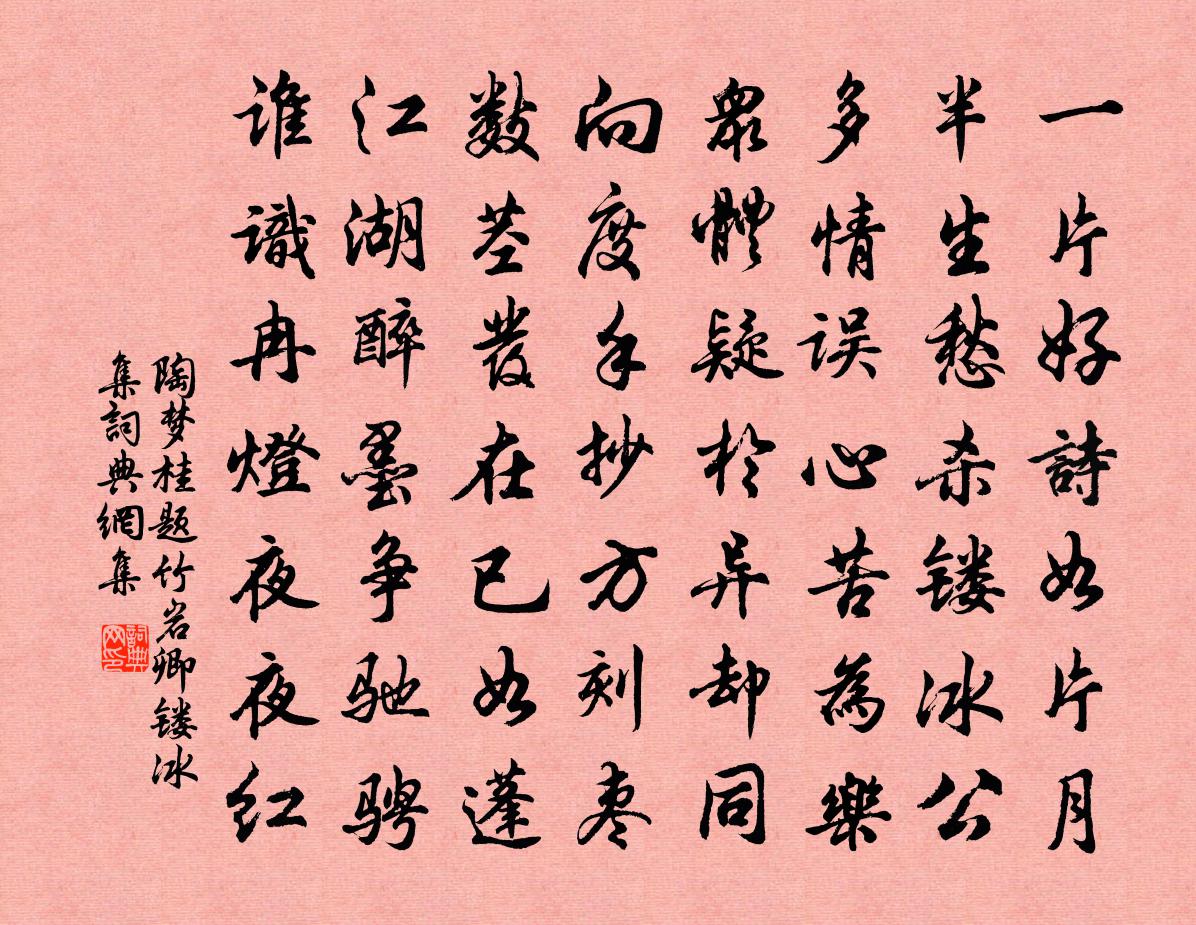 一片好詩如片月
半生愁杀镂冰公
多情误心苦為樂
衆體疑於异却同
向度手抄方刻枣
數茎發在已如蓬
江湖醉墨争驰骋
谁識冉燈夜夜红
陶梦桂题竹岩卿镂冰
集詞典網集
詞典网印